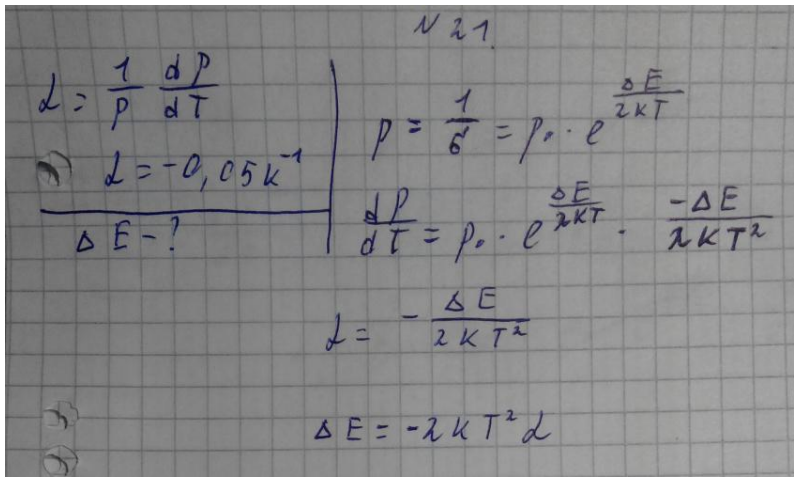 N 21.
α = 1/ρ dρ/dT
α = -0,05 K⁻¹
ΔE - ?
ρ = 1/σ = ρ₀ · e^(ΔE/2kT)
dρ/dT = ρ₀ · e^(ΔE/2kT) · -ΔE/2kT²
α = - ΔE/2kT²
ΔE = -2kT²α